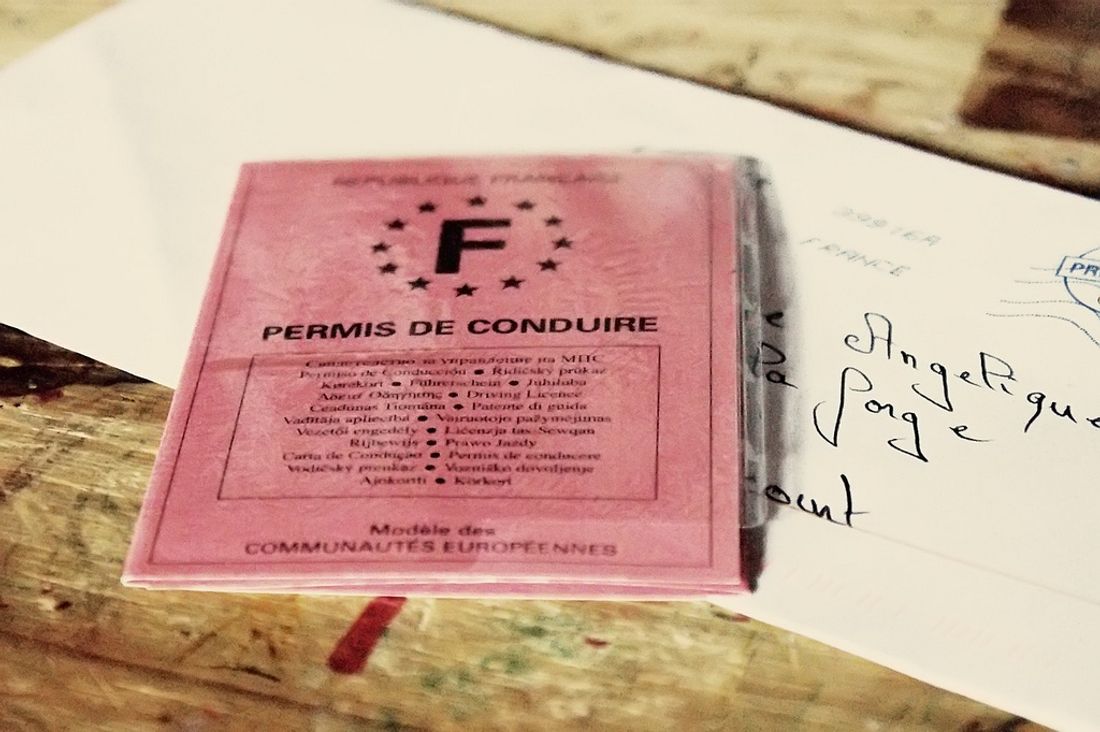 REPUBLIQUE FRANÇAISE
F
PERMIS DE CONDUIRE
Свидетелство за управление на МПС
Permiso de Conducción ● Řidičský průkaz
Kørekort ● Führerschein ● Juhiluba
Άδεια Οδήγησης ● Driving Licence
Ceadunas Tiomána ● Patente di guida
Vadītāja apliecība ● Vairuotojo pažymėjimas
Vezetői engedély ● Liċenzja tas-Sewqan
Rijbewijs ● Prawo Jazdy
Carta de Condução ● Permis de conducere
Vodičský preukaz ● Vozniško dovoljenje
Ajokortti ● Körkort
Modèle des
COMMUNAUTÉS EUROPÉENNES
39816A
FRANCE
PR
Angelique